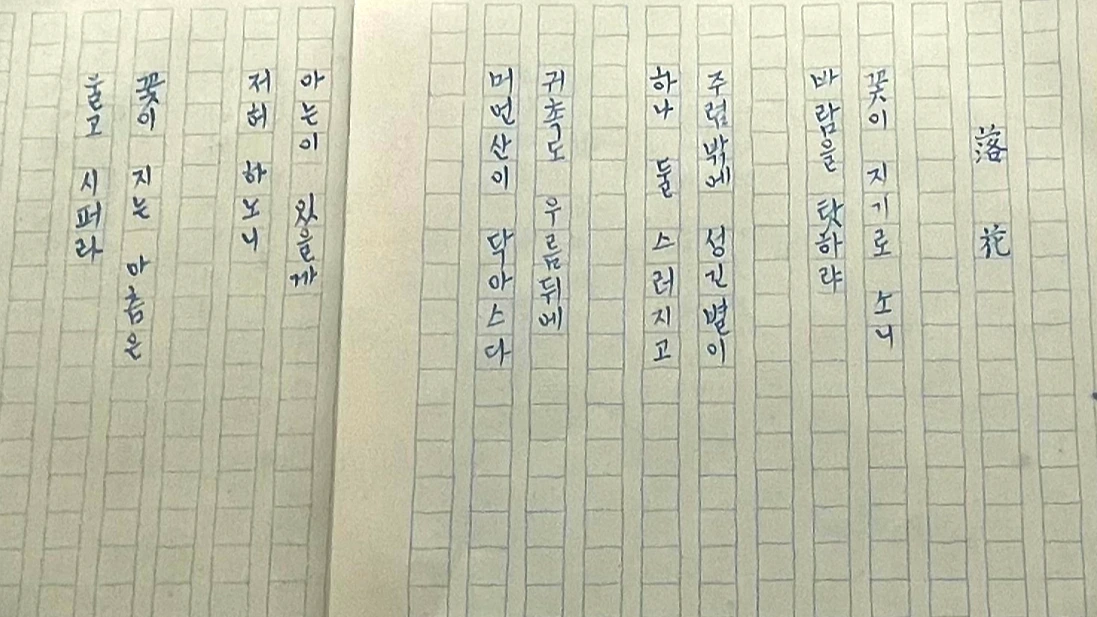 落花
꽃이 지기로 소니
바람을 탓하랴
주렴밖에 성긴별이
하나 둘 스러지고
귀촉도 우름뒤에
머언산이 닥아스다
아는이 있을까
저허 하노니
꽃이 지는 아츰은
울고 시퍼라